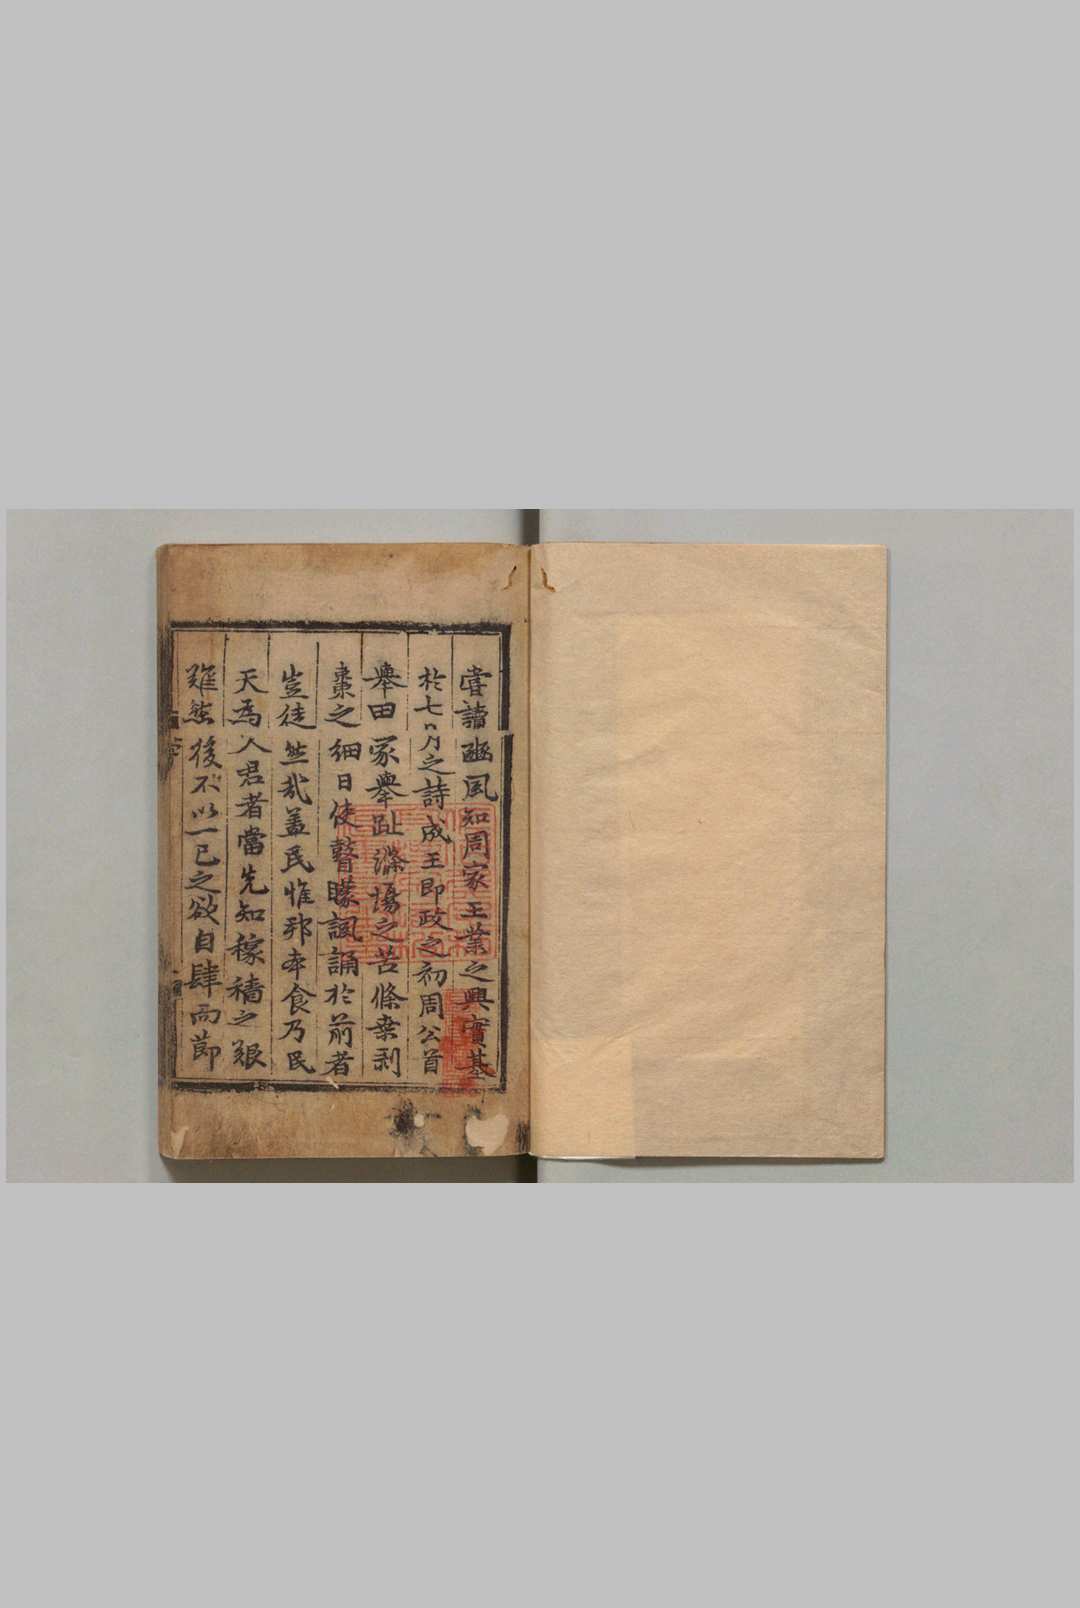 嘗讀豳風知周家王業之興實基
於七月之詩成王即政之初周公首
舉田家舉趾滌場之苦條桒剥
棗之細日使瞽矇諷誦於前者
豈徒然哉盖民惟邦本食乃民
天為人君者當先知稼穡之艱
難然後不以一己之欲自肆而節